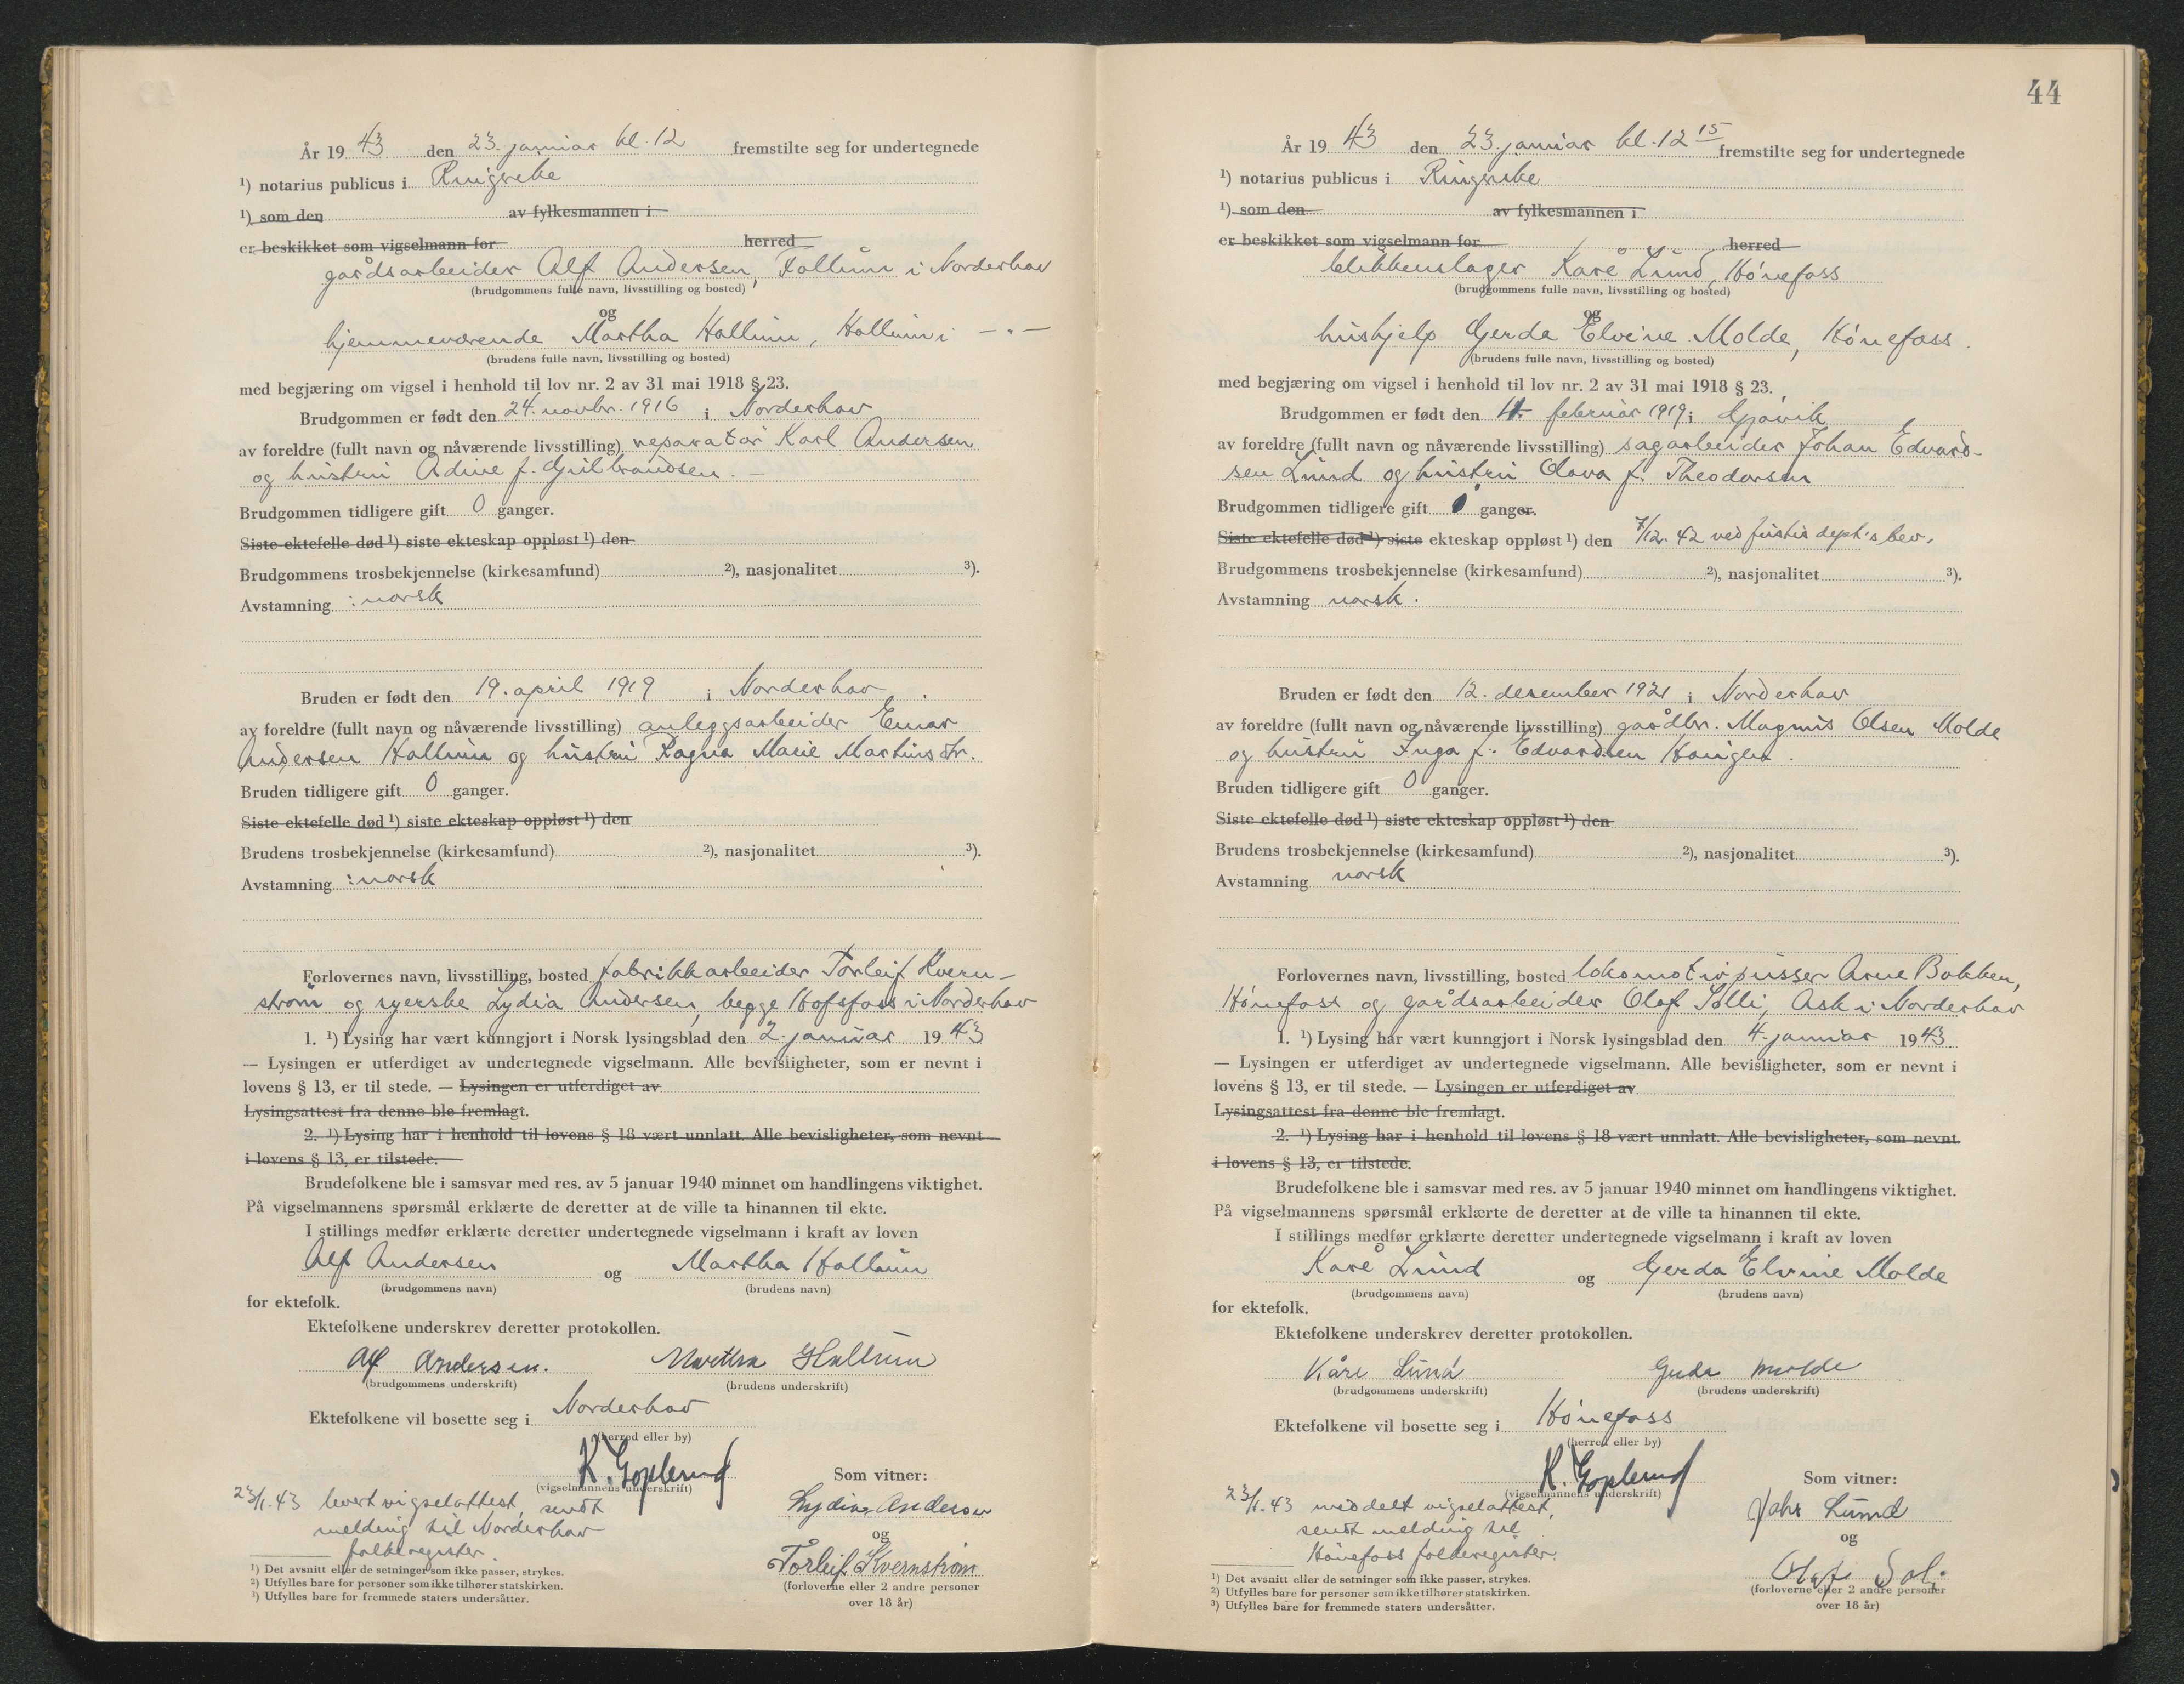 År 19 43 den 23. januar kl. 12 fremstilte seg for undertegnede
¹) notarius publicus i Ringerike
¹) som den av fylkesmannen i
er beskikket som vigselmann for herred
gårdsarbeider Alf Andersen, Hallum i Norderhov
(brudgommens fulle navn, livsstilling og bosted)
og
hjemmeværende Martha Hallum, Hallum i — " —
(brudens fulle navn, livsstilling og bosted)
med begjæring om vigsel i henhold til lov nr. 2 av 31 mai 1918 § 23.
Brudgommen er født den 24. novbr. 1916 i Norderhov
av foreldre (fullt navn og nåværende livsstilling) reparatør Karl Andersen
og hustru Adine f. Gulbrandsen. —
Brudgommen tidligere gift 0 ganger.
Siste ektefelle død ¹) siste ekteskap oppløst ¹) den
Brudgommens trosbekjennelse (kirkesamfund) ²), nasjonalitet ³).
Avstamning : norsk
Bruden er født den 19. april 1919 i Norderhov.
av foreldre (fullt navn og nåværende livsstilling) anleggsarbeider Einar
Andersen Hallum og hustru Ragna Marie Martinsdtr.
Bruden tidligere gift 0 ganger.
Siste ektefelle død ¹) siste ekteskap oppløst ¹) den
Brudens trosbekjennelse (kirkesamfund) ²), nasjonalitet ³).
Avstamning : norsk
Forlovernes navn, livsstilling, bosted fabrikkarbeider Torleif Kvern-
strøm og syerske Lydia Andersen, begge Hofsfoss i Norderhov
1. ¹) Lysing har vært kunngjort i Norsk lysingsblad den 2. januar 19 43
— Lysingen er utferdiget av undertegnede vigselmann. Alle bevisligheter, som er nevnt i
lovens § 13, er til stede. — Lysingen er utferdiget av
Lysingsattest fra denne ble fremlagt.
2. ¹) Lysing har i henhold til lovens § 18 vært unnlatt. Alle bevisligheter, som nevnt
i lovens § 13, er tilstede.
Brudefolkene ble i samsvar med res. av 5 januar 1940 minnet om handlingens viktighet.
På vigselmannens spørsmål erklærte de deretter at de ville ta hinannen til ekte.
I stillings medfør erklærte deretter undertegnede vigselmann i kraft av loven
Alf Andersen og Martha Hallum
(brudgommens navn) (brudens navn)
for ektefolk.
Ektefolkene underskrev deretter protokollen.
Alf Andersen. Martha Hallum
(brudgommens underskrift) (brudens underskrift)
Ektefolkene vil bosette seg i Norderhov
(herred eller by)
K. Goplerud
(vigselmannens underskrift)
Som vitner:
23/1. 43 levert vigselattest, sendt
melding til Norderhov
folkeregister.
Lydia Andersen
og
Torleif Kvernstrøm
(forloverne eller 2 andre personer
over 18 år)
¹) Det avsnitt eller de setninger som ikke passer, strykes.
²) Utfylles bare for personer som ikke tilhører statskirken.
³) Utfylles bare for fremmede staters undersåtter.
44
År 19 43 den 23. januar kl. 12 15 fremstilte seg for undertegnede
¹) notarius publicus i Ringerike
¹) som den av fylkesmannen i
er beskikket som vigselmann for herred
blikkenslager Kåre Lund, Hønefoss
(brudgommens fulle navn, livsstilling og bosted)
og
hushjelp Gerda Elvine Molde, Hønefoss.
(brudens fulle navn, livsstilling og bosted)
med begjæring om vigsel i henhold til lov nr. 2 av 31 mai 1918 § 23.
Brudgommen er født den februar 1919 i Gjøvik
av foreldre (fullt navn og nåværende livsstilling) sagarbeider Johan Edvard-
sen Lund og hustru Olava f. Theodorsen
Brudgommen tidligere gift ganger.
Siste ektefelle død ¹) siste ekteskap oppløst ¹) den 7/12. 42 ved justisdept.s bev.
Brudgommens trosbekjennelse (kirkesamfund) ²), nasjonalitet ³).
Avstamning norsk.
Bruden er født den 12. desember 1921 i Norderhov
av foreldre (fullt navn og nåværende livsstilling) gårdbr. Magnus Olsen Molde
og hustru Inga f. Edvardsen Haugen.
Bruden tidligere gift 0 ganger.
Siste ektefelle død ¹) siste ekteskap oppløst ¹) den
Brudens trosbekjennelse (kirkesamfund) ²), nasjonalitet ³).
Avstamning norsk
Forlovernes navn, livsstilling, bosted lokomotivpusser Arne Bakken,
Hønefoss og gårdsarbeider Olaf Solli, Ask i Norderhov
1. ¹) Lysing har vært kunngjort i Norsk lysingsblad den 4. januar 19 43.
— Lysingen er utferdiget av undertegnede vigselmann. Alle bevisligheter, som er nevnt i
lovens § 13, er til stede. — Lysingen er utferdiget av
Lysingsattest fra denne ble fremlagt.
2. ¹) Lysing har i henhold til lovens § 18 vært unnlatt. Alle bevisligheter, som nevnt
i lovens § 13, er tilstede.
Brudefolkene ble i samsvar med res. av 5 januar 1940 minnet om handlingens viktighet.
På vigselmannens spørsmål erklærte de deretter at de ville ta hinannen til ekte.
I stillings medfør erklærte deretter undertegnede vigselmann i kraft av loven
Kåre Lund og Gerda Elvine Molde
(brudgommens navn) (brudens navn)
for ektefolk.
Ektefolkene underskrev deretter protokollen.
Kåre Lund Gerda Molde
(brudgommens underskrift) (brudens underskrift)
Ektefolkene vil bosette seg i Hønefoss
(herred eller by)
K. Goplerud
(vigselmannens underskrift)
Som vitner:
23/1. 43 meddelt vigselattest,
sendt melding til
Hønefoss folkeregister.
Lund
og
(forloverne eller 2 andre personer
over 18 år)
¹) Det avsnitt eller de setninger som ikke passer, strykes.
²) Utfylles bare for personer som ikke tilhører statskirken.
³) Utfylles bare for fremmede staters undersåtter.